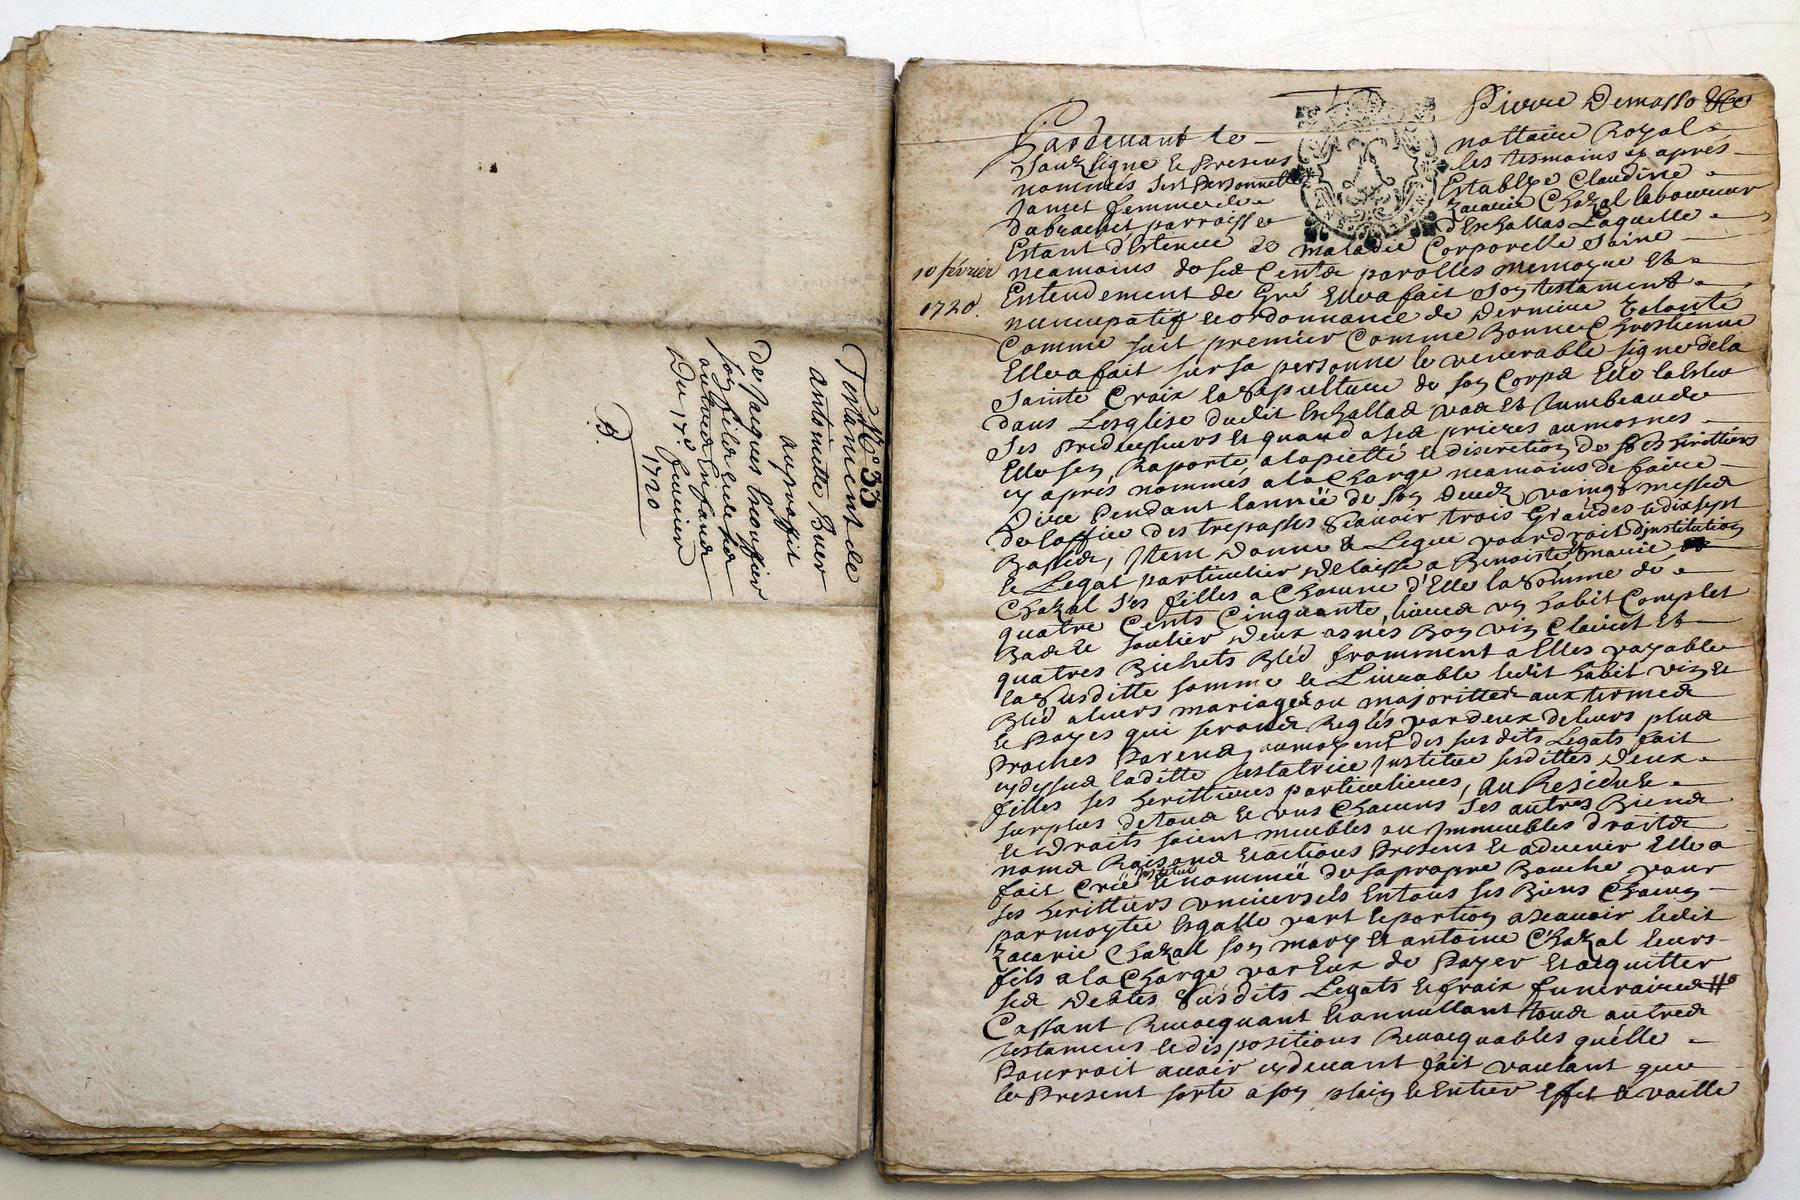 N° 33
Testament de
antoinette Buer
au proffit
De Jacques brouffier
son fils et de ses
autres Enfans
Du 17e feuvrier
1720
B.
Pierre Demasso
Pardevant le nottaire Royal
Souzsigné et Presens les tesmoins cy apres
nommés sest Personnellet Establye Claudine
Jamet femme de Zacarie Chazal laboureur
dabrachet parroisse d'Eschallas Laquelle
Estant d'Estenue de maladie Corporelle Saine
10 février
1720.
neamoins de ses Cents parolles memoyre Et
Entendement de Gré Elle a fait Son testament
nuncupatif et ordonnance de Derniere Volonté
Comme suit premier Comme Bonne Chrestienne
Elle a fait sur sa personne le venerable signe de la
Sainte Croix la Sepulture de son Corps Elle la Eslu
dans Lesglise dudit Eschallas vas Et tumbeau de
Ses Predecesseurs Et quand a ses prieres aumosnes
Elle sen Raporte a la pietté et discretion de ses heritiers
cy aprés nommés a la Charge neamoins de faire
Dire Pendant lannéé de son Decedz vaingt messes
de loffice des trepassés Scavoir trois Grandes et dix sept
Basses, Item Donne & Legue par droit d'institution
et Legat particulier Delaisse a Benoiste & marie
Chazal Ses filles a Chacune d'Elle la Somme de
quatre Cents Cinquante livres un habit Complet
Bas et Soulier Deux asnés Bon vin Clairet Et
quatres Bichets Bléd fromment a Elles payable
la Susditte somme et Livrable ledit habit vin et
Bléd a leurs mariages ou majorittés aux termes
et Payes qui seronts Reglés par deux de leurs plus
Proches Parens, au moyent des susdits Legats fait
cy dessus laditte testatrice Institue sesdittes Deux
filles ses herittieres particulieres, Au Residue
surplus de tous et uns Chacuns Ses autres Biens
et Droits soient meubles ou Immeubles droits
noms Raisons Et actions Presens Et advenir Elle a
fait Créé institué et nommée de sa propre Bouche pour
ses herittiers universels En tous ses Biens Chacun
par moytié Esgalle part et portion a Scavoir ledit
Zacarie Chazal son mary Et antoine Chazal leurs
fils a la Charge par Eux de Payer Et acquitter
ses Debtes Susdits Legats et fraix funeraires
Cassant Revocquant Et annullant tous autres
testamens et dispositions Revocquables qu'elle
Pourroit avoir cy devant fait voulant que
le Present sorte a son plain et Entier Effet & vaille